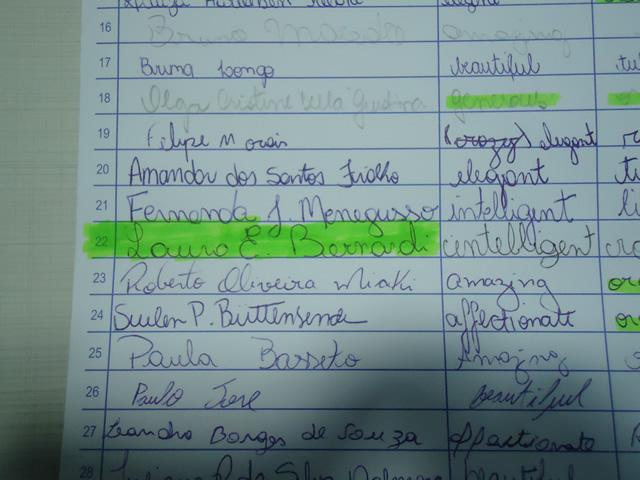 16 Bruno amazing
17 Bruna Longo beautiful
18 Olga Cristine Della Giustina generous
19 Filipe Morais (crazy) elegant
20 Amanda dos Santos Fialho elegant
21 Fernanda J. Menegusso intelligent
22 Laura E. Bernardi intelligent
23 Roberto Oliveira Miaki amazing
24 Suelen P. Büttensende affectionate
25 Paula Barreto Amazing
26 Paulo José beautiful
27 Leandro Borges de Souza affectionate
28 Silva beautiful